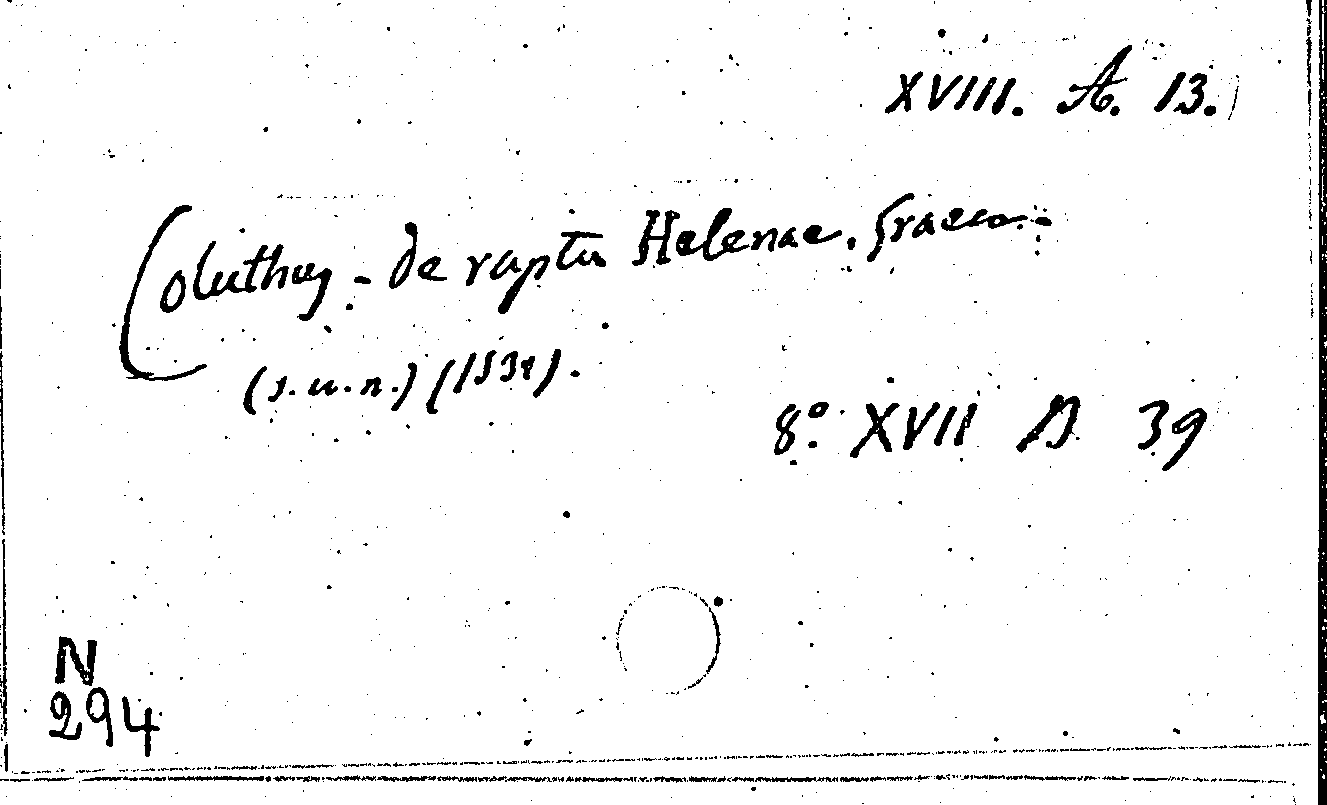 XVIII. A. 13.
Coluthus - de raptu Helenae. Graece.
(s. u. n.)
8º XVII D 39
N
294